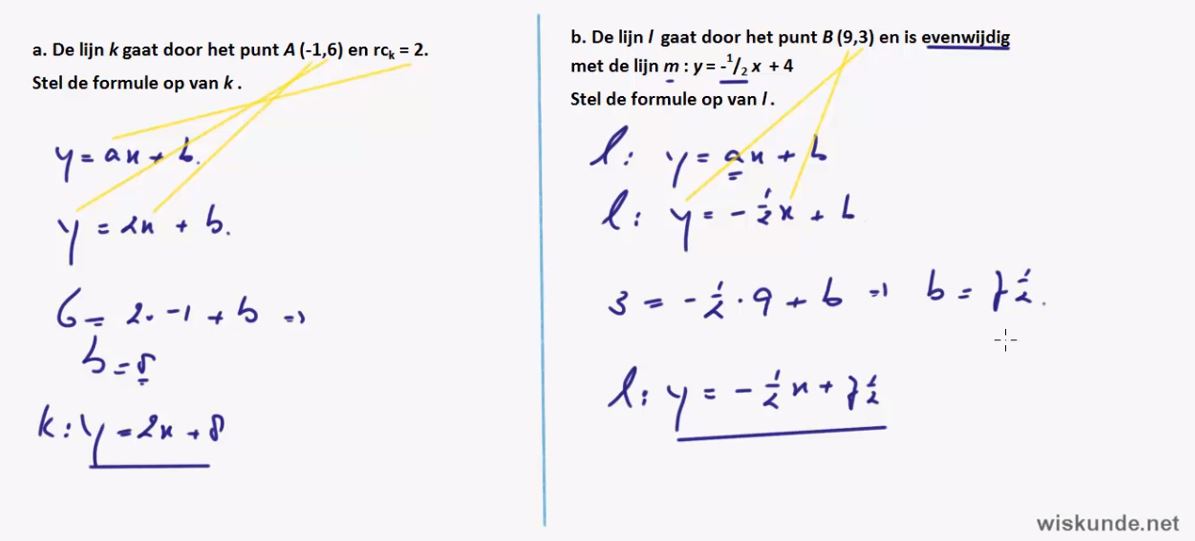 a. De lijn k gaat door het punt A (-1,6) en rcₖ = 2.
Stel de formule op van k.
y = ax + b.
y = 2x + b.
6 = 2 · -1 + b ⇒
b = 8
k: y = 2x + 8
b. De lijn l gaat door het punt B (9,3) en is evenwijdig
met de lijn m : y = -¹/₂ x + 4
Stel de formule op van l.
l: y = ax + b
l: y = -½x + b
3 = -½ · 9 + b ⇒ b = 7½.
l: y = -½x + 7½
wiskunde.net